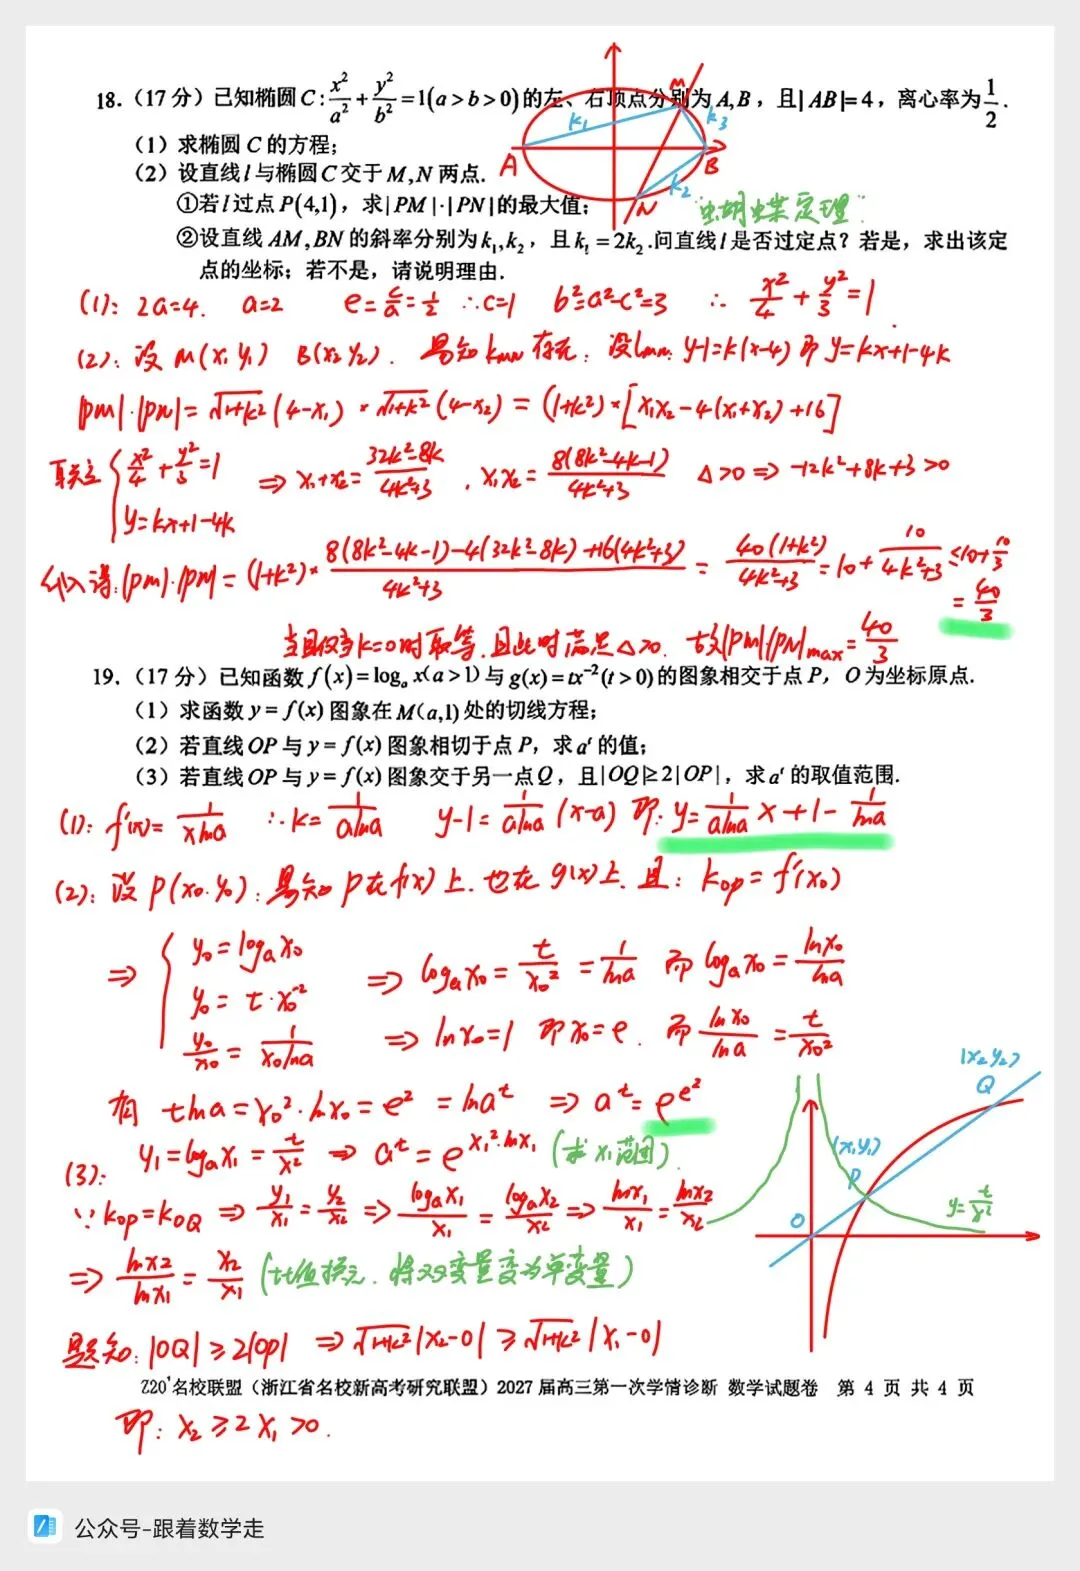 18.（17 分）已知椭圆 C: x²/a² + y²/b² = 1(a > b > 0)的左、右顶点分别为 A,B，且|AB|=4，离心率为 1/2.
（1）求椭圆 C 的方程；
（2）设直线 l 与椭圆 C 交于 M,N 两点.
①若 l 过点 P(4,1)，求|PM|·|PN|的最大值；
②设直线 AM,BN 的斜率分别为 k₁,k₂，且 k₁ = 2k₂.问直线 l 是否过定点？若是，求出该定
点的坐标；若不是，请说明理由.
A B M N k₁ k₂ k₃
"蝴蝶定理"
(1): 2a=4. a=2 e=c/a=1/2 ∴c=1 b²=a²-c²=3 ∴ x²/4 + y²/3 = 1
(2): 设 M(x₁ y₁) B(x₂ y₂). 易知 kMN 存在. 设lMN: y-1=k(x-4) 即 y=kx+1-4k
|PM|·|PN|= √1+k² (4-x₁) * √1+k² (4-x₂) = (1+k²)*[x₁x₂-4(x₁+x₂)+16]
联立 { x²/4 + y²/3 = 1
y=kx+1-4k
⇒ x₁+x₂= 32k²-8k / 4k²+3 , x₁x₂= 8(8k²-4k-1) / 4k²+3 Δ>0 ⇒ -12k²+8k+3>0
代入得: |PM|·|PN| = (1+k²)* 8(8k²-4k-1)-4(32k²-8k)+16(4k²+3) / 4k²+3 = 40(1+k²) / 4k²+3 = 10+ 10 / 4k²+3 ≤10+ 10/3
= 40/3
当且仅当 k=0时取等. 且此时满足Δ>0. 故|PM||PN|max= 40/3
19.（17 分）已知函数 f(x)=logₐ x(a>1)与 g(x)=tx⁻²(t>0)的图象相交于点 P，O 为坐标原点.
（1）求函数 y=f(x) 图象在 M(a,1) 处的切线方程；
（2）若直线 OP 与 y=f(x) 图象相切于点 P，求 aᵗ 的值；
（3）若直线 OP 与 y=f(x) 图象交于另一点 Q，且|OQ|≥2|OP|，求 aᵗ 的取值范围.
(1): f'(x)= 1/xlna ∴k= 1/alna y-1= 1/alna (x-a) 即: y= 1/alna x+1- 1/lna
(2): 设 P(x₀. y₀): 易知 P在f(x)上. 也在 g(x)上. 且: kop=f'(x₀)
⇒ { y₀=logₐx₀
y₀= t·x₀⁻²
y₀/x₀ = 1/x₀lna
⇒ logₐx₀= t/x₀² = 1/lna 而 logₐx₀= lnx₀/lna
⇒ lnx₀=1 即x₀=e. 而 lnx₀/lna = t/x₀²
有 tlna=x₀²·lnx₀=e² =lnaᵗ ⇒ aᵗ=e^e²
(3): y₁=logₐx₁= t/x² ⇒ aᵗ=e^x₁²·lnx₁ (求x₁范围)
∵kop=koQ ⇒ y₁/x₁ = y₂/x₂ ⇒ logₐx₁/x₁ = logₐx₂/x₂ ⇒ lnx₁/x₁ = lnx₂/x₂
⇒ lnx2/lnx₁ = x₂/x₁ (比值换元. 将双变量变为单变量)
(x₂ y₂)
Q
(x₁ y₁)
P
O
y= t/x²
题知: |OQ|≥2|OP| ⇒ √1+k² |x₂-0| ≥ √1+k² |x₁-0|
Z20⁺名校联盟（浙江省名校新高考研究联盟）2027 届高三第一次学情诊断 数学试题卷 第 4 页 共 4 页
即: x₂≥2x₁>0.
公众号-跟着数学走